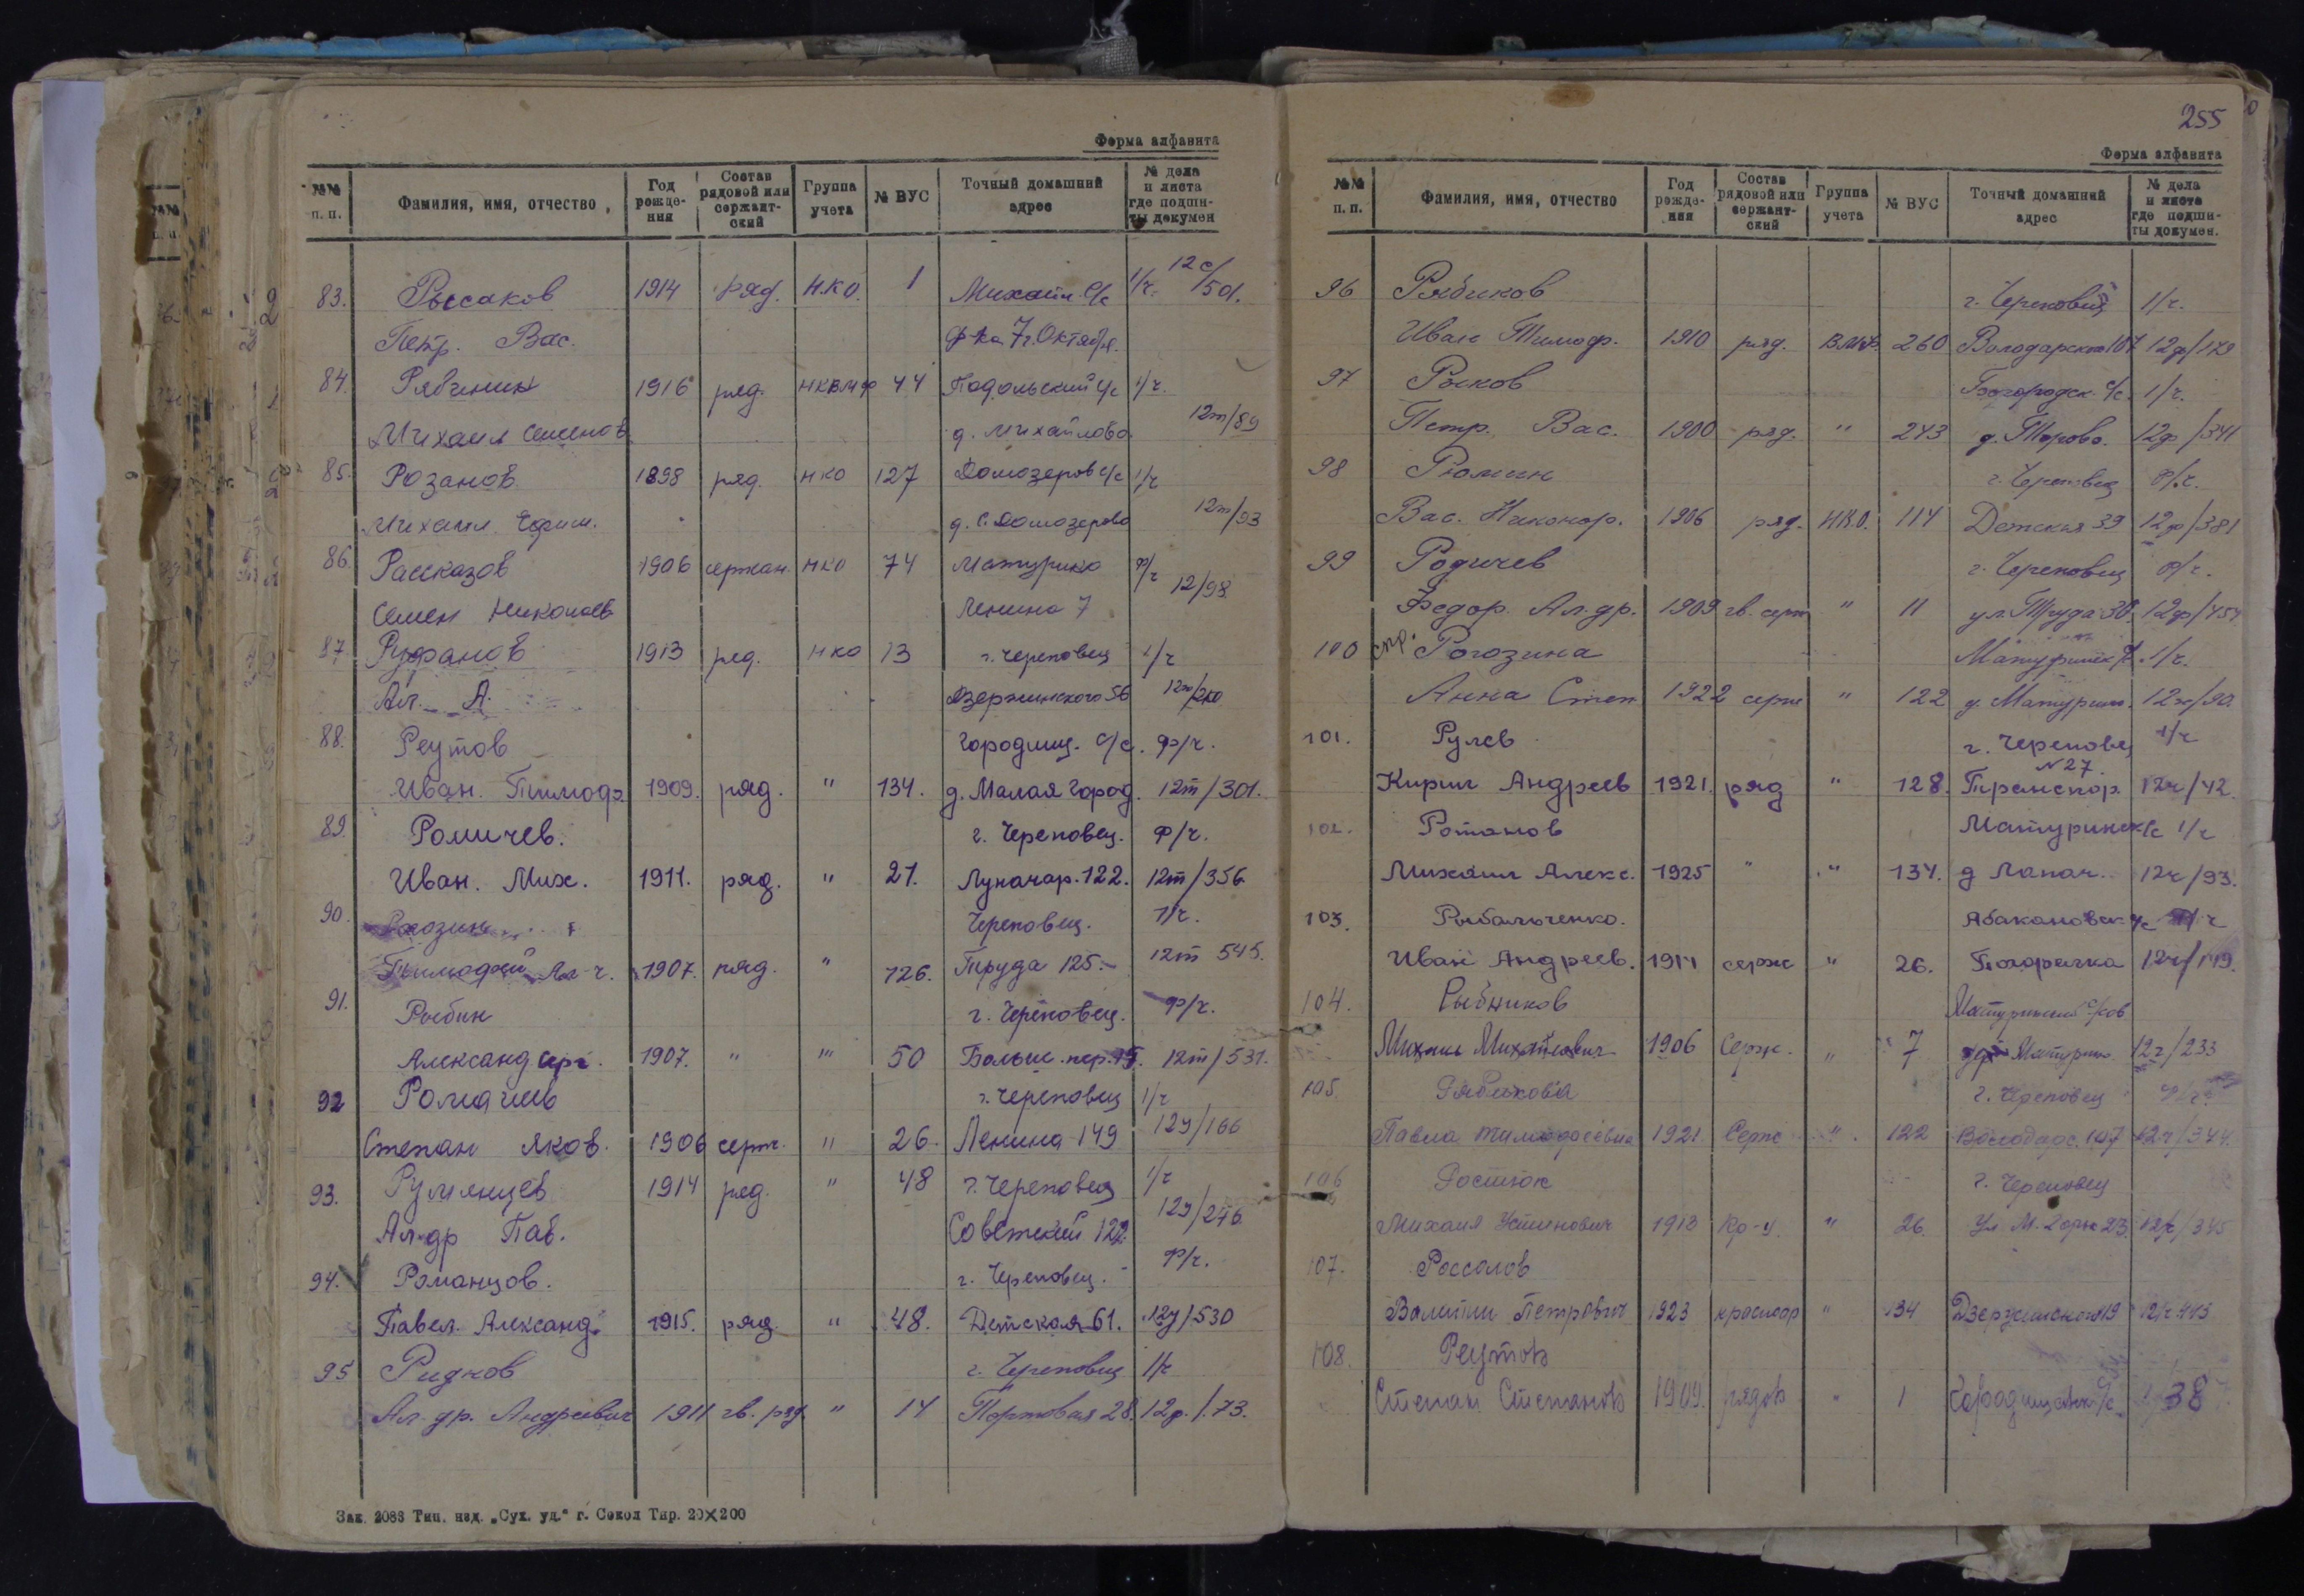 Форма алфавита
№№ п. п. Фамилия, имя, отчество Год рождения Состав рядовой или сержантский Группа учета № ВУС Точный домашний адрес № дела и листа где подшиты докумен
83. Рыссаков 1914 ряд. Н.К.О. 1 Михайл. С/с 1/ч. 12с/501.
Петр. Вас. ф-ка 7 г. Октября.
84. Рябинин 1916 ряд. НКВМФ 44 Подольский с/с 1/ч.
Михаил Семенов. д. Михайлово 12т/89
85. Розанов 1898 ряд. НКО 127 Домозеров с/с 1/ч
Михаил Ефим. д. С. Домозерово 12т/93
86. Рассказов 1906 сержан. НКО 74 Матурино ф/ч 12/98
Семен Николаев Ленина 7
87. Руфанов 1913 ряд. НКО 13 г. Череповец 1/ч
Ал. А. Дзержинского 56
88. Реутов Городищ. с/с. ф/ч.
Иван. Тимоф. 1909. ряд. " 134. д. Малая Город. 12т/301.
89. Ромичев. г. Череповец. ф/ч.
Иван. Мих. 1911. ряд. " 21. Луначар. 122. 12т/356
90. Череповец. 1/ч.
Тимофей 1907. ряд. " 126. Труда 125. 12т 545.
91. Рыбин г. Череповец. ф/ч.
Александ Серг. 1907. " " 50 Больш. пер. 15. 12т/531.
92 Ромашев г. Череповец 1/ч
Степан Яков. 1906 серж. " 26. Ленина 149 12у/166
93. Румянцев 1914 ряд. " 48 г. Череповец 1/ч
Ал-др Пав. Советский 122 12у/276
94. Романцов. г. Череповец. ф/ч.
Павел. Александ. 1915. ряд. " 48. Детская 61. 12у/530
95 Риднов г. Череповец 1/ч
Ал-др. Андреевич 1911 гв. ряд " 14 Портовая 28. 12ф./73.
Зак. 2083 Тип. изд. „Сух. уд.“ г. Сокол Тир. 20×200
255
Форма алфавита
№№ п. п. Фамилия, имя, отчество Год рождения Состав рядовой или сержантский Группа учета № ВУС Точный домашний адрес № дела и листа где подшиты докумен.
96 Рябиков г. Череповец 1/ч.
Иван Тимоф. 1910 ряд. ВМФ. 260 Володарского 107 12ф/179
97 Рыков Богородск. с/с. 1/ч.
Петр. Вас. 1900 ряд. " 243 д. Торово. 12ф/341
98 Рюмин г. Череповец ф/ч.
Вас. Никонор. 1906 ряд. НКО. 114 Детская 39 12ф/381
99 Родичев г. Череповец ф/ч.
Федор. Ал-др. 1909 гв. серж " 11 ул. Труда 30 12ф/454
100 стр. Рогозина 1/ч.
Анна Степ 1922 серж " 122 д. Матурин.
101. Рулев г. Череповец 1/ч
№27.
Кирил Андреев 1921. ряд " 128. Транспор. 12ч/42.
102. Ротанов Матуринск/с 1/ч
Михаил Алекс. 1925 " " 134. д Лапач. 12ч/93.
103. Рыбальченко. Абакановск с/с
Иван Андреев. 1911 серж " 26. 12ч/119.
104. Рыбников Матуринский с/сов
Михаил Михайлович 1906 Серж. " 7 Матурин. 12ч/233
105. Рябикова г. Череповец
Павла Тимофеевна 1921 Серж " 122 Володарс. 107 12ч/344.
106 Ростюк г. Череповец
Михаил Устинович 1913 кр-ц. " 26. ул М. Горьк 23. 12ч/345
107. Россолов
Петрович 1923 краснар " 134 Дзержинского 19 12ч 443
108. Реутов
Степан Степанов 1909. рядов " 1 38